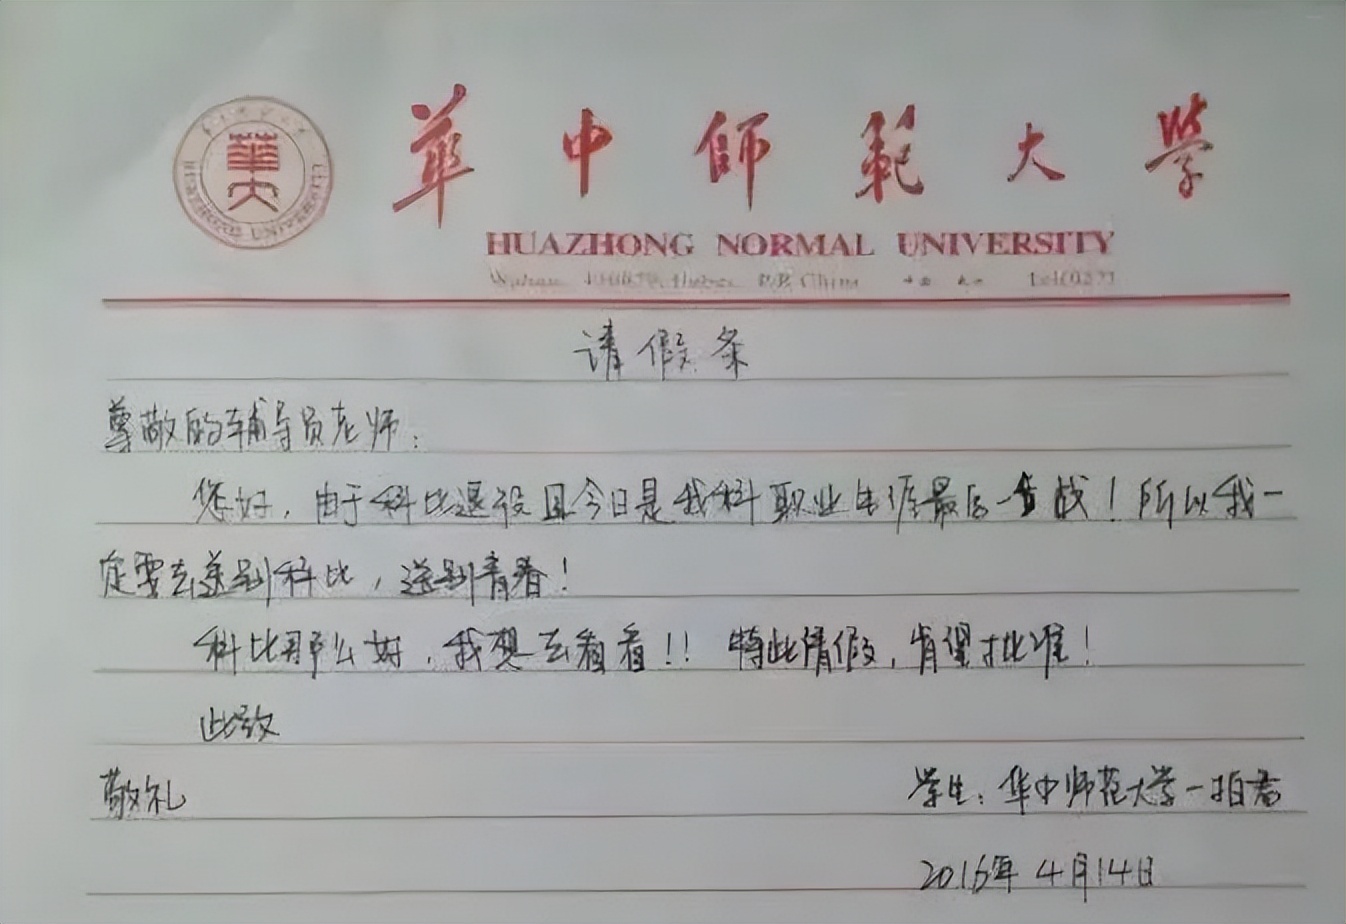 華中師範大學
HUAZHONG NORMAL UNIVERSITY
请假条
尊敬的辅导员老师:
您好,由于科比退役且今日是我科职业生涯最后一战!所以我一
定要去送别科比,送别青春!
科比那么好,我想去看看!! 特此请假,肯望批准!
此致
敬礼
学生:华中师范大学一拍君
2016年4月14日